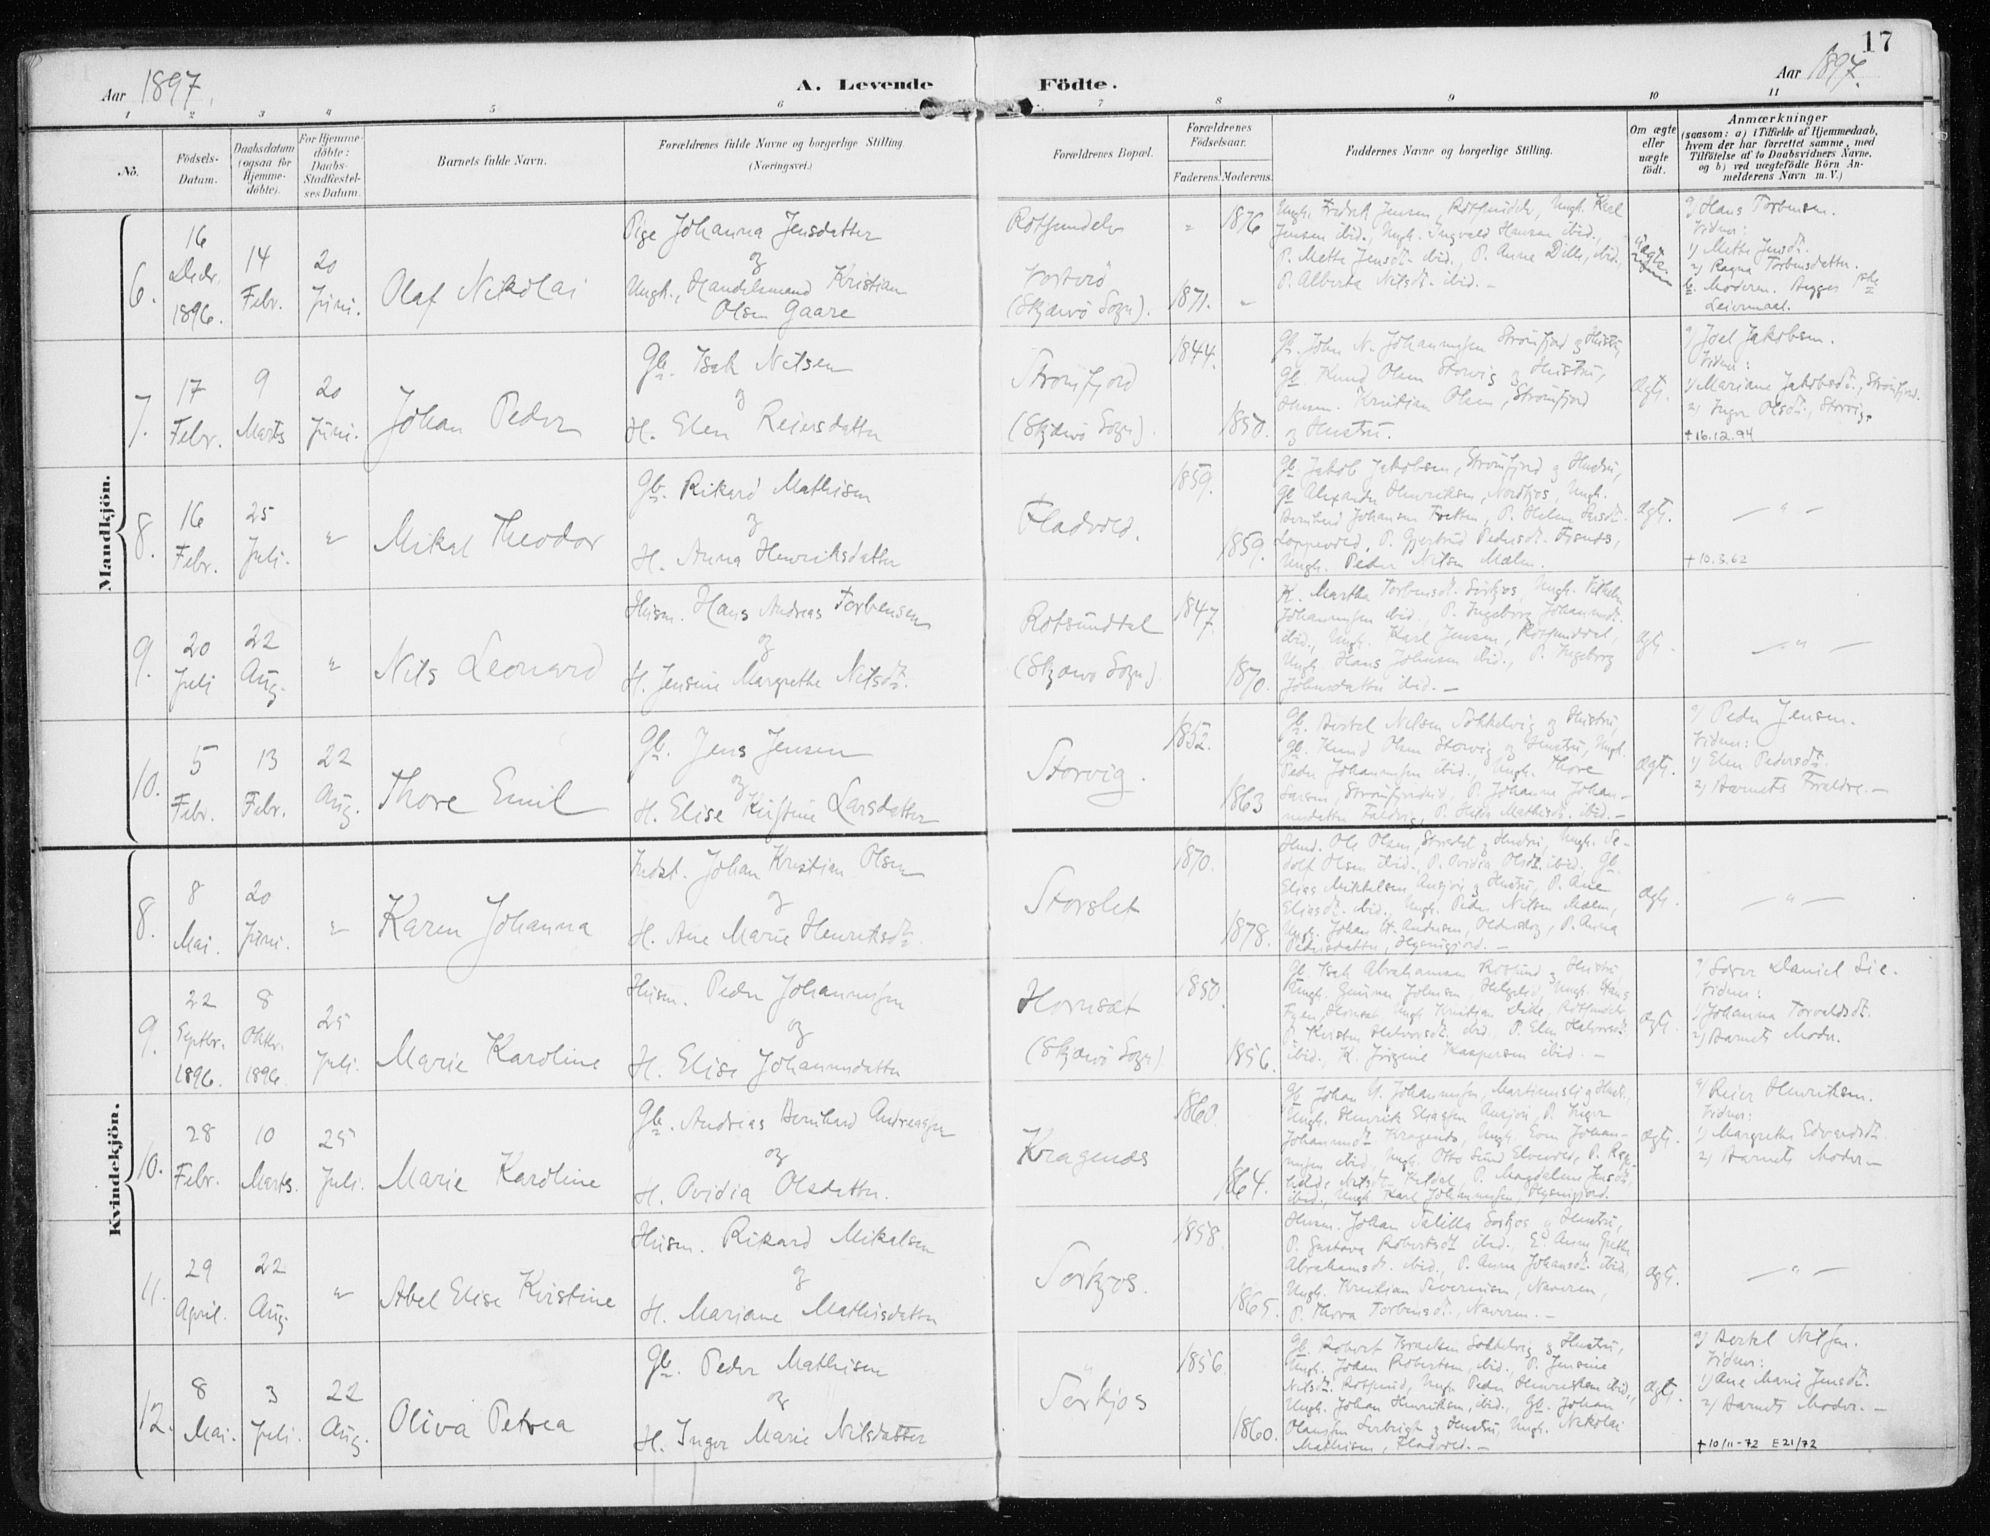 17
Aar 1897.
A. Levende Födte.
Aar 1897.
1 2 3 4 5 6 7 8 9 10 11
No.
Födsels-Datum.
Daabsdatum (ogsaa for Hjemme-döbte).
For Hjemme-döbte: Daabs-Stadfæstel-ses Datum.
Barnets fulde Navn.
Forældrenes fulde Navne og borgerlige Stilling (Næringsvei.)
Forældrenes Bopæl.
Forældrenes Födselsaar.
Faderens. Moderens.
Faddernes Navne og borgerlige Stilling.
Om ægte eller uægte födt.
Anmærkninger
(saasom: a) i Tilfælde af Hjemmedaab,
hvem der har forrettet samme, med
Tilföielse af to Daabsvidners Navne,
og b) ved uægtefödte Börn An-
melderens Navn m. V.)
Mandkjön.
6.
16 Decbr. 1896.
14 Febr.
20 Juni.
Olaf Nikolai
Pige Johanna Jensdatter
og
Ungk., Handelsmand Kristian
Olsen Gaare
Rotsundelv
(Skjærvö Sogn).
" 1876
1871. "
Ungk. Fredrik Jensen, Rotsundelv, Ungk. Karl
Jensen ibid., Ungk. Ingvald Hansen ibid.,
P. Mette Jensdt. ibid., P. Anne Dille, ibid.,
P. Alberta Nilsdt. ibid. —
Uægte
a) Hans Torbensen.
Vidner:
1) Mette Jensdt.
2) Ragna Torbensdatter.
b. Moderen. Begges 1ste
Leiermaal.
7.
17 Febr.
9 Marts
20 Juni.
Johan Peder
Gb. Isak Nilsen
og
H. Elen Reiersdatter
Strömfjord
(Skjærvö Sogn).
1844.
1850.
Gb. John N. Johannesen Strömfjord og Hustru,
Gb. Knud Olsen Storvig og Hustru,
Husm. Kristian Olsen, Strömfjord
og Hustru.
ægte.
a) Joel Jakobsen.
Vidner:
1) Mariane Jakobsdt., Strömfjord.
2) Inger Olsdt., Storvig.
+16.12.94
8.
16 Febr.
25 Juli.
"
Mikal Theodor
Gb. Rikard Mathisen
og
H. Anna Henriksdatter
Fladvold.
1859.
1859.
Gb. Jakob Jakobsen, Strömfjord og Hustru,
Gb. Alexander Henriksen, Nordkjos, Ungk.
Bernhard Johansen Tretten, P. Helene
Loppevold, P. Gjertrud Pedersdt.
Ungk. Peder Nilsen Mælen.
ægte.
— " —
+10.3.62
9.
20 Juli
22 Aug.
"
Nils Leonard
Husm. Hans Andreas Torbensen
og
H. Jensine Margrethe Nilsdt.
Rotsundtal
(Skjærvö Sogn).
1847.
1870.
K. Martha Torbensdt. Sörkjos, Ungk. Vilhelm
Johannesen ibid., P. Ingeborg Johannesdt.
ibid., Ungk. Karl Jensen, Rotsunddal,
Ungk. Hans Johnsen ibid., P. Ingeborg
Johnsdatter ibid. —
ægte.
— " —
10.
5 Febr.
13 Febr.
22 Aug.
Thore Emil
Gb. Jens Jensen
og
H. Elise Kirstine Larsdatter
Storvig.
1852.
1863
Gb. Bertel Nilsen Sokkelvig og Hustru,
Gb. Knud Olsen Storvig og Hustru, Ungk.
Peder Johannesen ibid., Ungk. Thore
Larsen, P. Johanna Johan-
nesdatter
Mathisdt. ibid. —
ægte.
a) Peder Jensen.
Vidner:
1) Elen Pedersdt.
2) Barnets Forældre. —
Kvindekjön.
8.
8 Mai.
20 Juni.
"
Karen Johanna
Indst. Johan Kristian Olsen
og
H. Ane Marie Henriksdt.
Storslet
1870.
1878.
Husm. Ole Olsen, Storslet og Hustru, Ungk. Pe-
dolf Olsen ibid., P. Ovidia Olsdt. ibid., Gb.
Elias Mikkelsen, Ansjön og Hustru, P. Ane
Eliasdt. ibid., Ungk. Peder Nilsen Mælen,
Ungk. Johan A. Andersen, P. Anna
Pedersdatter,
ægte.
— " —
9.
22 Septbr. 1896.
8 Oktbr. 1896.
25 Juli.
Marie Karoline
Husm. Peder Johannesen
og
H. Elise Johannesdatter
Hornset
(Skjærvö Sogn)
1850.
1856.
Gb. Isak Abrahamsen Rotsund og Hustru,
Ungk. Gunnar Johnsen, Ungk. Hans
Hornset, Ungk. Kristian Dille, Rotsundelv,
P. Kirsten Halvorsdt. ibid. P. Elen Halvorsdt.
ibid., K. Jörgine Kaspersen ibid. —
ægte.
a) Lærer Daniel Lie.
Vidner:
1) Johanna Torvaldsdt.
2) Barnets Moder.
10.
28 Febr.
10 Marts.
25 Juli.
Marie Karoline
Gb. Andreas Bernhard Andreasen
og
H. Ovidia Olsdatter.
Kragenes
1860.
1864.
Gb. Johan A. Johannesen, og Hustru,
Ungk. Henrik Eliasen Ansjön, P. Inger
Johannesdt. Kragenes, Ungk. Even Johan-
nesen ibid., Ungk. Otto Lund Elvevold, P. Rag-
hilde Nilsdt. P. Magdalene Jensdt.
ibid., Ungk. Karl Johannesen,
ægte.
a) Reier Henriksen.
Vidner:
1) Margrethe Edvardsdt.
2) Barnets Moder —
11.
29 April.
22 Aug.
"
Abel Elise Kristine
Husm. Rikard Mikalsen
og
H. Mariane Mathisdatter
Sörkjos.
1858.
1865.
Husm. Johan Salilla Sörkjos og Hustru,
P. Gustava Robertsdt. ibid., E. Anne Grethe
Abrahamsdt. ibid., P. Anna Johansdt. ibid.,
Ungk. Kristian Severinsen, Naveren,
P. Thora Torbensdt., Naveren. —
ægte.
— " —
12.
8 Mai.
3 Juli.
22 Aug.
Oliva Petrea
Gb. Peder Mathisen
og
H. Inger Marie Nilsdatter
Sörkjos
1856
1860.
Gb. Robert Israelsen Sokkelvig og Hustru,
Ungk. Johan Robertsen, ibid., P. Jensine
Nilsdt. Rotsund, Ungk. Peder Henriksen ibid.,
Ungk. Johan Henriksen, ibid., Gb. Johan
og Hustru, Ungk. Nikolai
Mathisen, Fladvold. —
ægte.
a) Bertel Nilsen.
Vidner:
1) Ane Marie Jensdt.
2) Barnets Moder. —
+10/11-72 E21/72